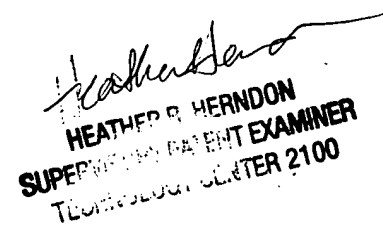 Heather Hern
HEATHER R. HERNDON
SUPERVISORY PATENT EXAMINER
TECHNOLOGY CENTER 2100